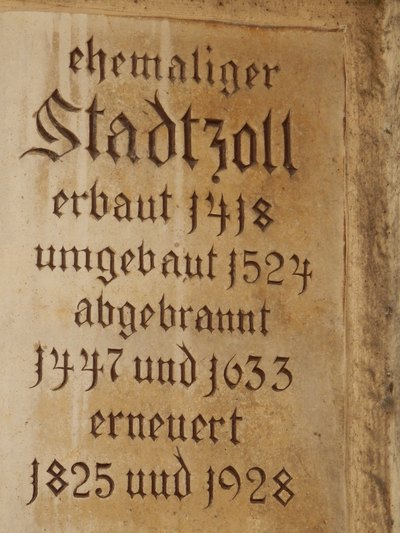 ehemaliger
Stadtzoll
erbaut 1418
umgebaut 1524
abgebrannt
1447 und 1633
erneuert
1825 und 1928